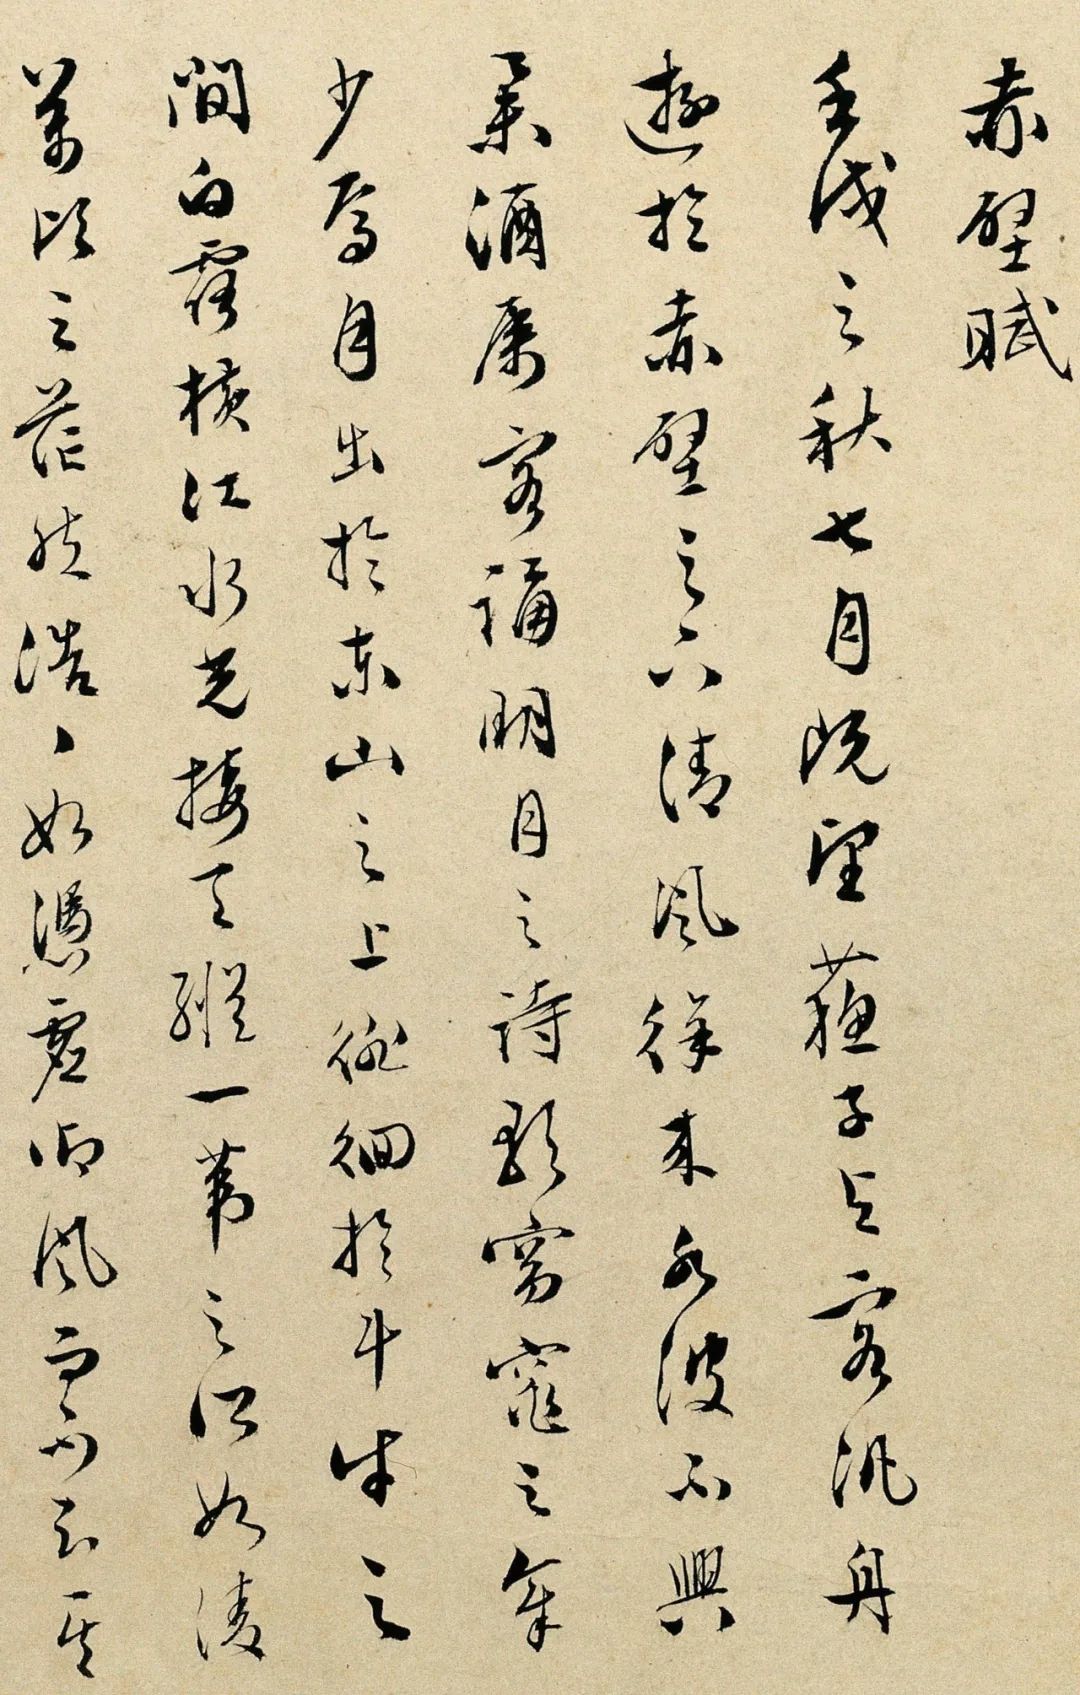 赤壁賦
壬戌之秋七月既望蘇子与客汎舟
遊於赤壁之下清風徐来水波不興
舉酒属客誦明月之詩歌窈窕之章
少焉月出於東山之上徘徊於斗牛之
間白露横江水光接天縱一葦之所如凌
萬頃之茫然浩〻如憑虚御風而不知其